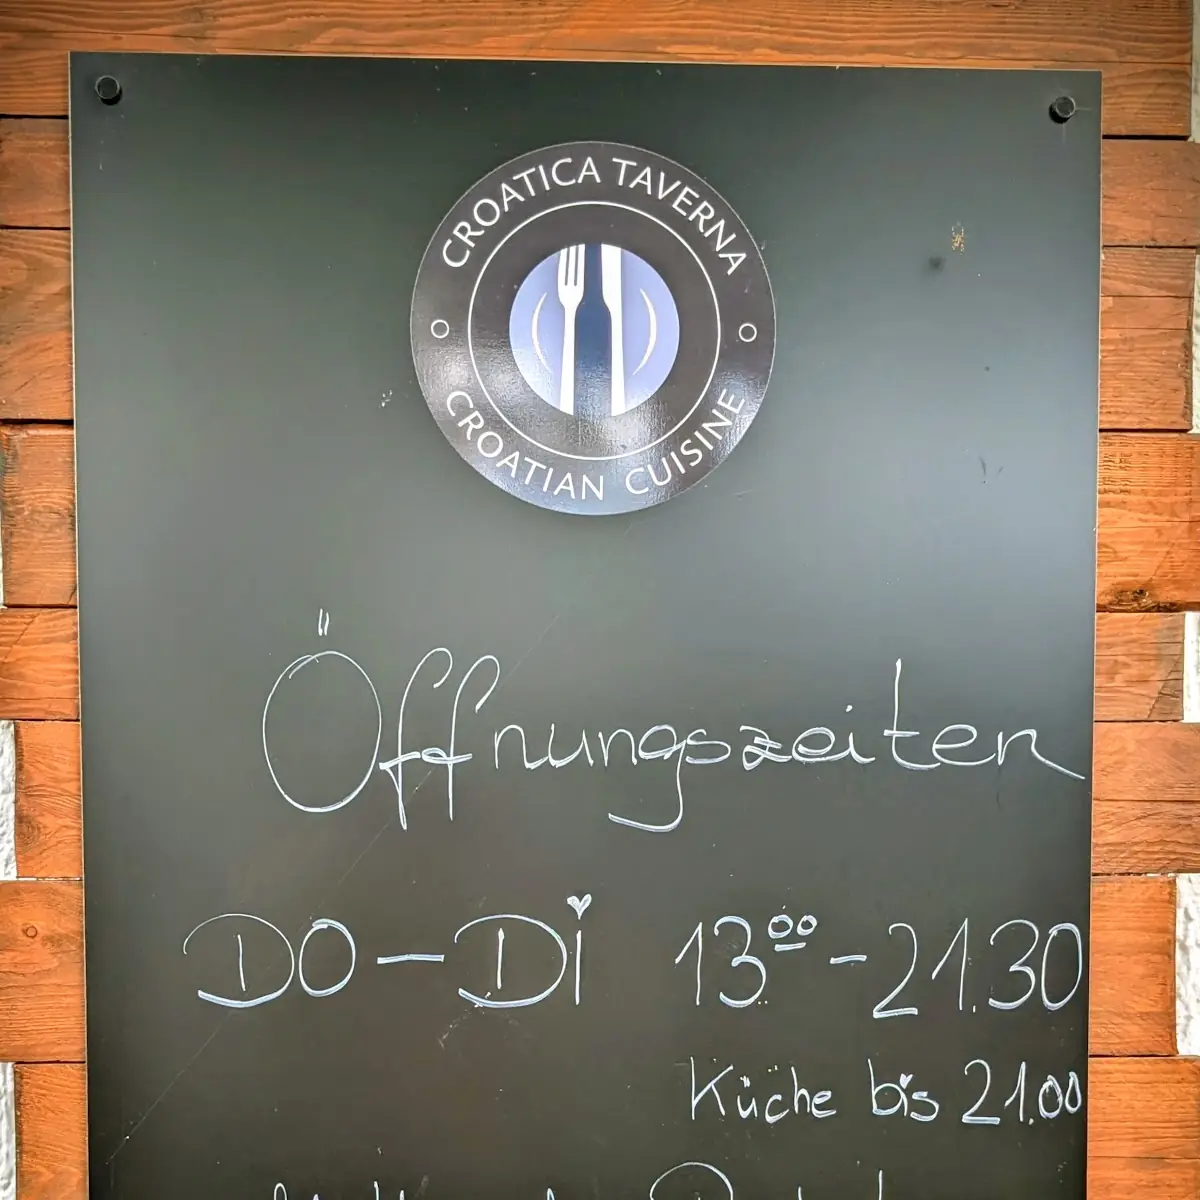 CROATICA TAVERNA
CROATIAN CUISINE
Öffnungszeiten
DO – Di 13⁰⁰ – 21.30
Küche bis 21.00